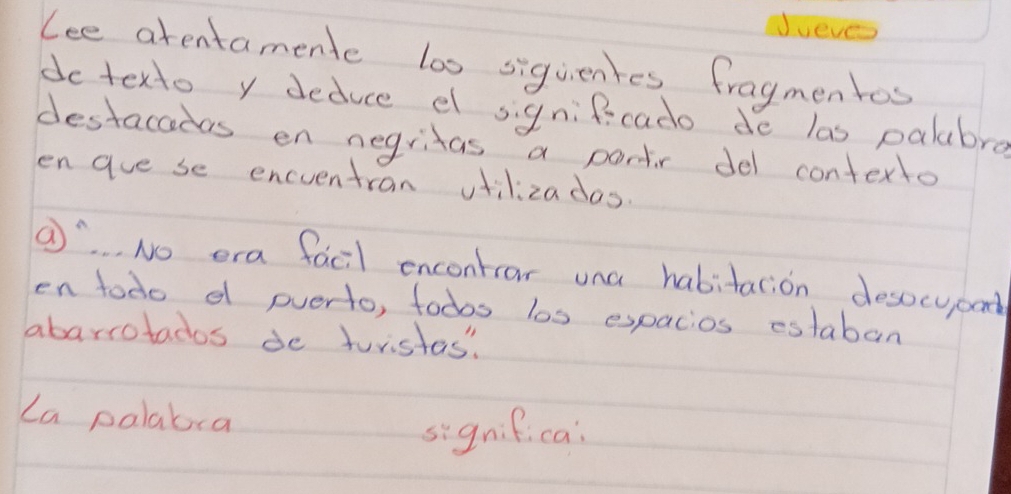 Jueves
Lee atentamente los siguientes fragmentos
de texto y deduce el significado de las palabra
destacadas en negritas a partir del contexto
en que se encuentran utilizadas.
a) "... No era fácil encontrar una habitación desocupad
en todo el puerto, todos los espacios estaban
abarrotados de turistas".
La palabra significa: